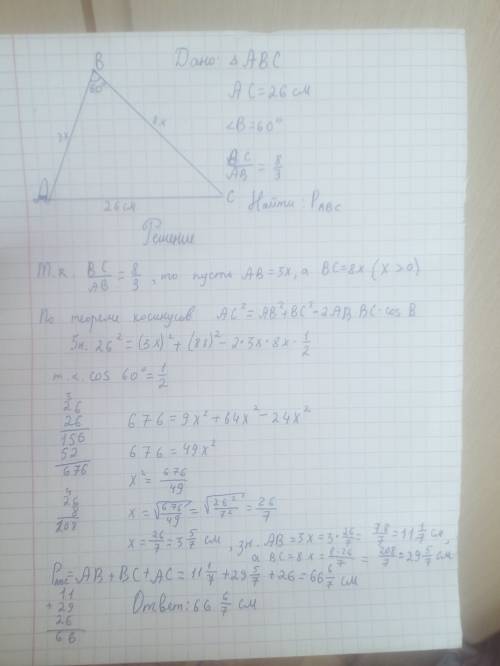 B
60°
3x
8x
A
26 см
C
Дано: △ABC
AC=26 см
∠B=60°
BC/AB = 8/3
Найти: P_ABC
Решение
Т.к. BC/AB = 8/3, то пусть AB=3x, а BC=8x (x>0)
По теореме косинусов AC²=AB²+BC²-2AB·BC·cos B
Зн. 26²=(3x)²+(8x)²-2·3x·8x·1/2
т.к. cos 60°=1/2
3
26
26
156
52
676
676=9x²+64x²-24x²
676=49x²
x²=676/49
4
26
8
208
x=√(676/49)=√(26²/7²)=26/7
x=26/7=3 5/7 см, зн. AB=3x=3·26/7=78/7=11 1/7 см,
а BC=8x=8·26/7=208/7=29 5/7 см
P_ABC=AB+BC+AC=11 1/7+29 5/7+26=66 6/7 см
11
+29
26
66
Ответ: 66 6/7 см